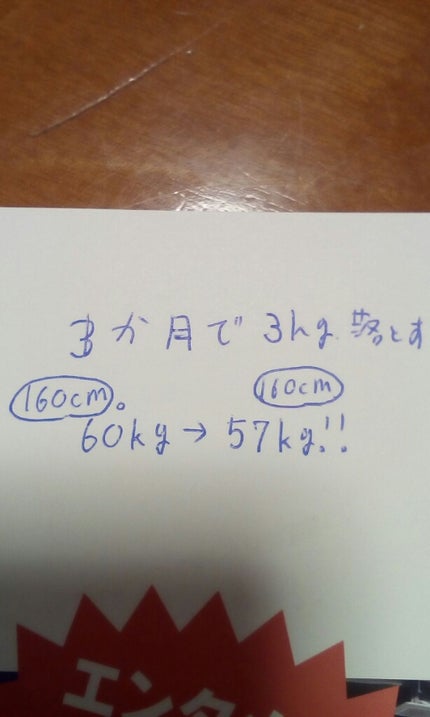 3か月で 3kg 落とす
160cm 。 160cm
60kg → 57kg!!
エンタ